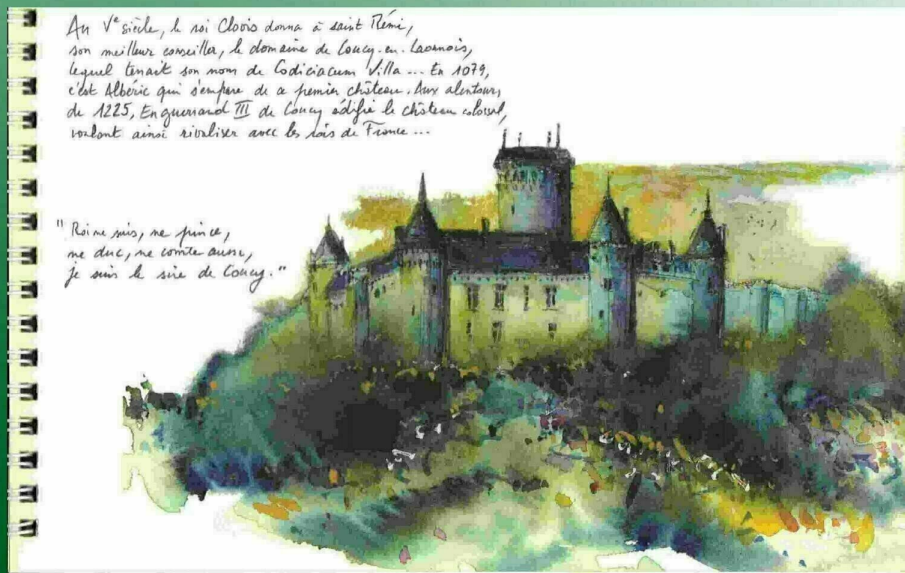 Au Ve siècle, le roi Clovis donna à saint Rémi,
son meilleur conseiller, le domaine de Coucy-en-Laonnois,
lequel tenait son nom de Codiciacum Villa ... En 1079,
c'est Albéric qui s'empare de ce premier château. Aux alentours
de 1225, Enguerrand III de Coucy édifie le château colossal,
voulant ainsi rivaliser avec les rois de France ...
" Roi ne suis, ne prince,
ne duc, ne comte aussi,
je suis le sire de Coucy. "